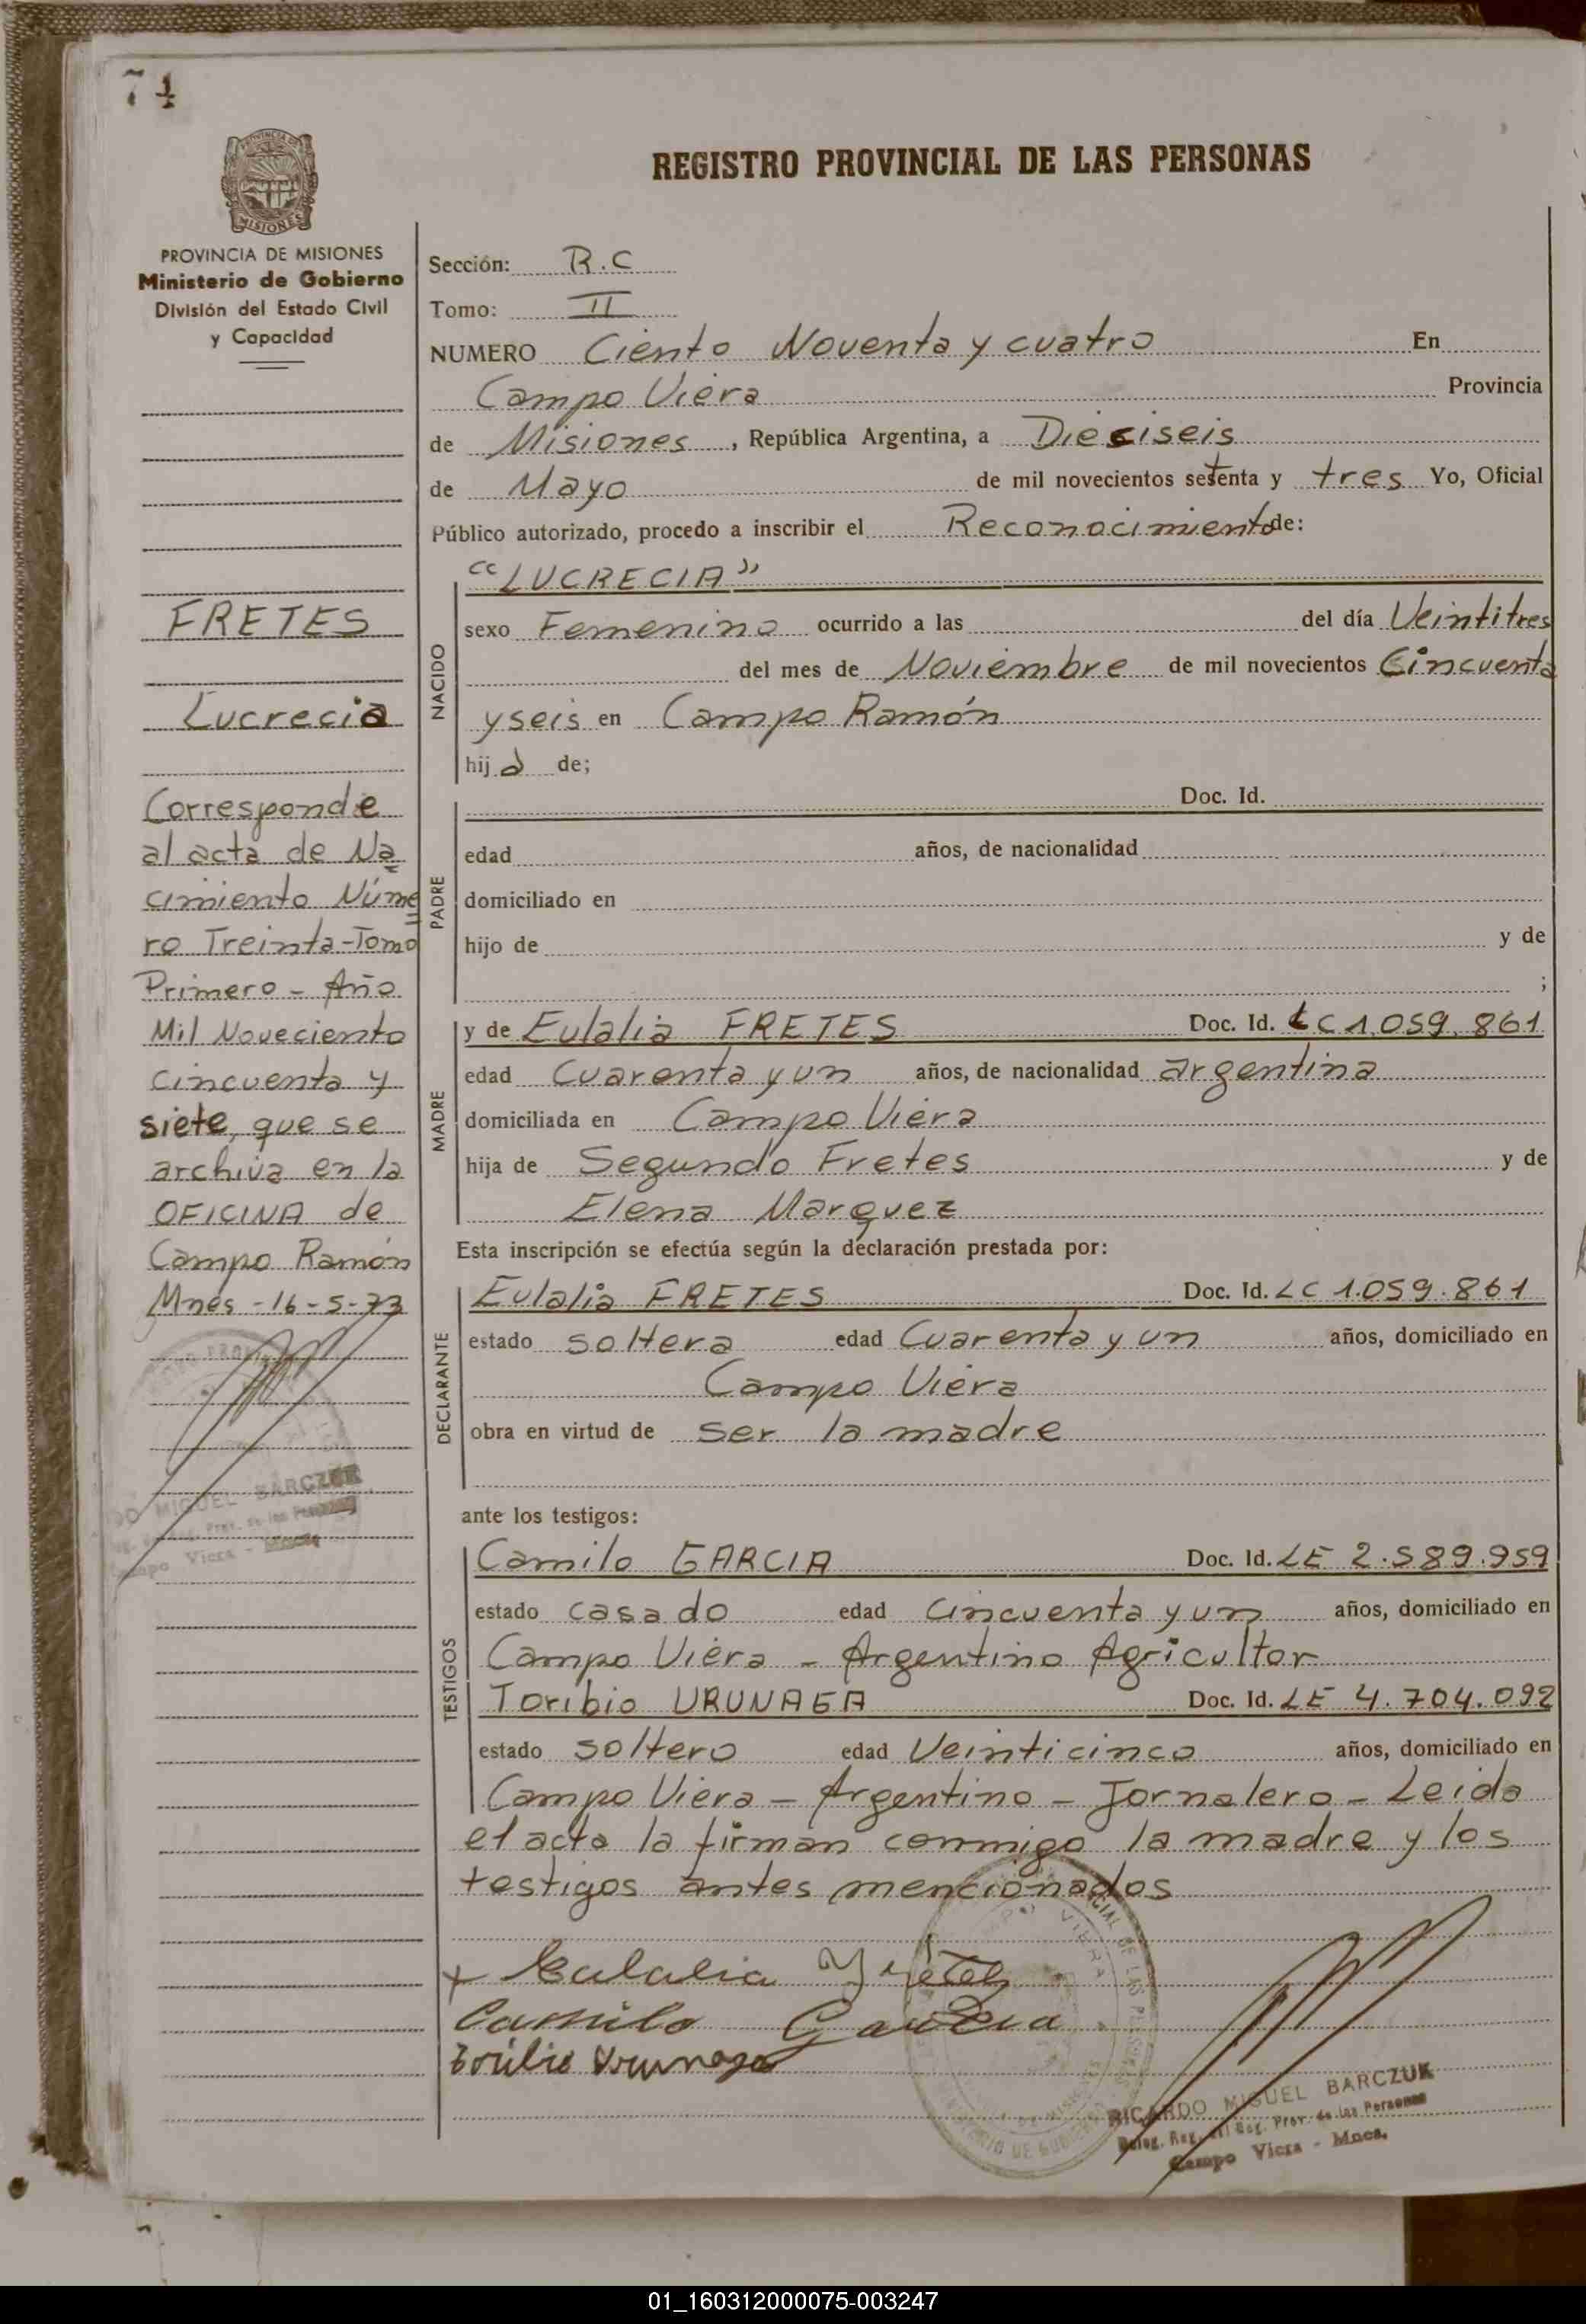 74
REGISTRO PROVINCIAL DE LAS PERSONAS
PROVINCIA DE MISIONES
Ministerio de Gobierno
División del Estado Civil
y Capacidad
FRETES
Lucrecia
Corresponde
al acta de Na
cimiento Núme
ro Treinta-Tomo
Primero - Año
Mil Noveciento
cincuenta y
siete, que se
archiva en la
OFICINA de
Campo Ramón
Mnes - 16-5-73
MIGUEL BARCZUK
Campo Viera -
Sección: R.C
Tomo: II
NUMERO Ciento Noventa y cuatro En
Campo Viera Provincia
de Misiones, República Argentina, a Dieciseis
de Mayo de mil novecientos setenta y tres Yo, Oficial
Público autorizado, procedo a inscribir el Reconocimiento de:
NACIDO
"LUCRECIA"
sexo Femenino ocurrido a las del día Veintitres
del mes de Noviembre de mil novecientos Cincuenta
y seis en Campo Ramón
hija de;
PADRE
Doc. Id.
edad años, de nacionalidad
domiciliado en
hijo de y de
;
MADRE
y de Eulalia FRETES Doc. Id. LC 1.059.861
edad Cuarenta y un años, de nacionalidad argentina
domiciliada en Campo Viera
hija de Segundo Fretes y de
Elena Marquez
Esta inscripción se efectúa según la declaración prestada por:
DECLARANTE
Eulalia FRETES Doc. Id. LC 1.059.861
estado soltera edad Cuarenta y un años, domiciliado en
Campo Viera
obra en virtud de ser la madre
ante los testigos:
TESTIGOS
Camilo GARCIA Doc. Id. LE 2.589.959
estado casado edad cincuenta y un años, domiciliado en
Campo Viera - Argentino Agricultor
Toribio URUNAGA Doc. Id. LE 4.704.092
estado soltero edad Veinticinco años, domiciliado en
Campo Viera - Argentino - Jornalero - Leida
el acta la firman conmigo la madre y los
testigos antes mencionados
x Eulalia Fretes
Camilo Garcia
Toribio Urunaga
RICARDO MIGUEL BARCZUK
Deleg. Reg. Prov. de las Personas
Campo Viera - Mnes.
01_160312000075-003247